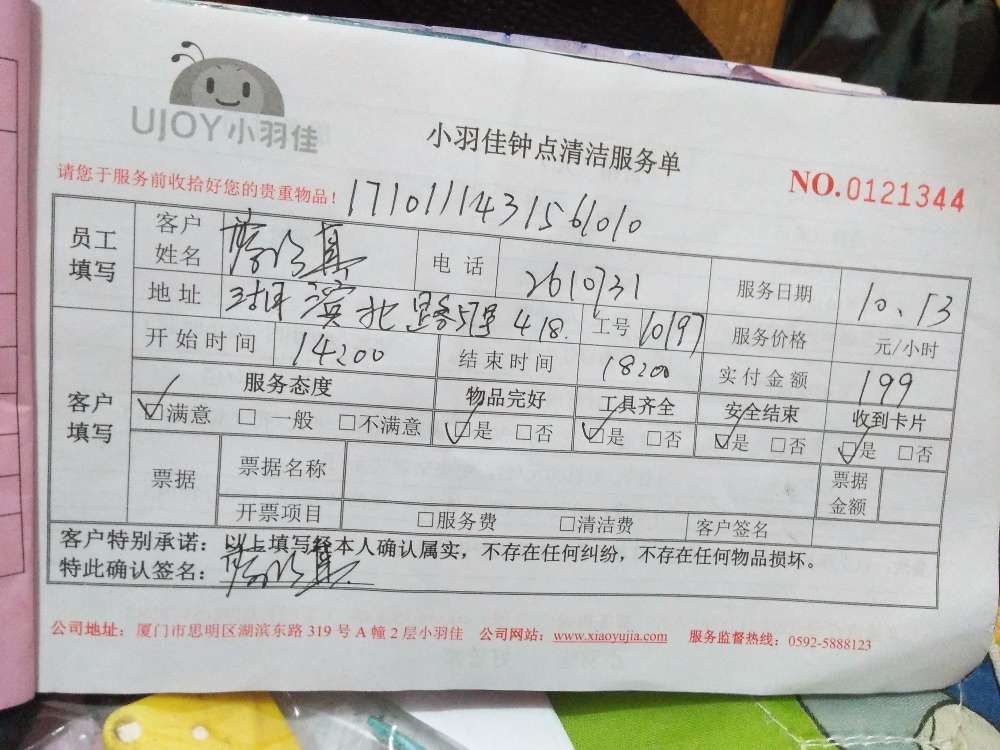 UJOY小羽佳
小羽佳钟点清洁服务单
请您于服务前收拾好您的贵重物品！
NO.0121344
1710111431561010
员工填写 客户姓名 电话 2610731 服务日期 10.13
地址 滨北路 418. 工号 10197 服务价格 元/小时
开始时间 14200 结束时间 18200 实付金额 199
客户填写 服务态度 物品完好 工具齐全 安全结束 收到卡片
☑满意 □一般 □不满意 ☑是 □否 ☑是 □否 ☑是 □否 ☑是 □否
票据 票据名称 票据金额
开票项目 □服务费 □清洁费 客户签名
客户特别承诺：以上填写经本人确认属实，不存在任何纠纷，不存在任何物品损坏。
特此确认签名：
公司地址：厦门市思明区湖滨东路 319 号 A 幢 2 层小羽佳 公司网站：www.xiaoyujia.com 服务监督热线：0592-5888123